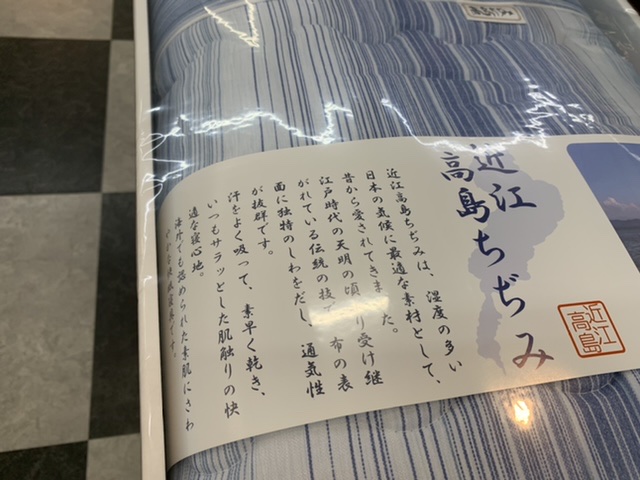 近江
高島ちぢみ
近江
高島
近江高島ちぢみは、湿度の多い
日本の気候に最適な素材として、
昔から愛されてきま た。
江戸時代の天明の頃 り受け継
がれている伝統の技で 布の表
面に独特のしわをだし、通気性
が抜群です。
汗をよく吸って、素早く乾き、
いつもサラッとした肌触りの快
適な寝心地。
海外でも認められた素肌にさわ